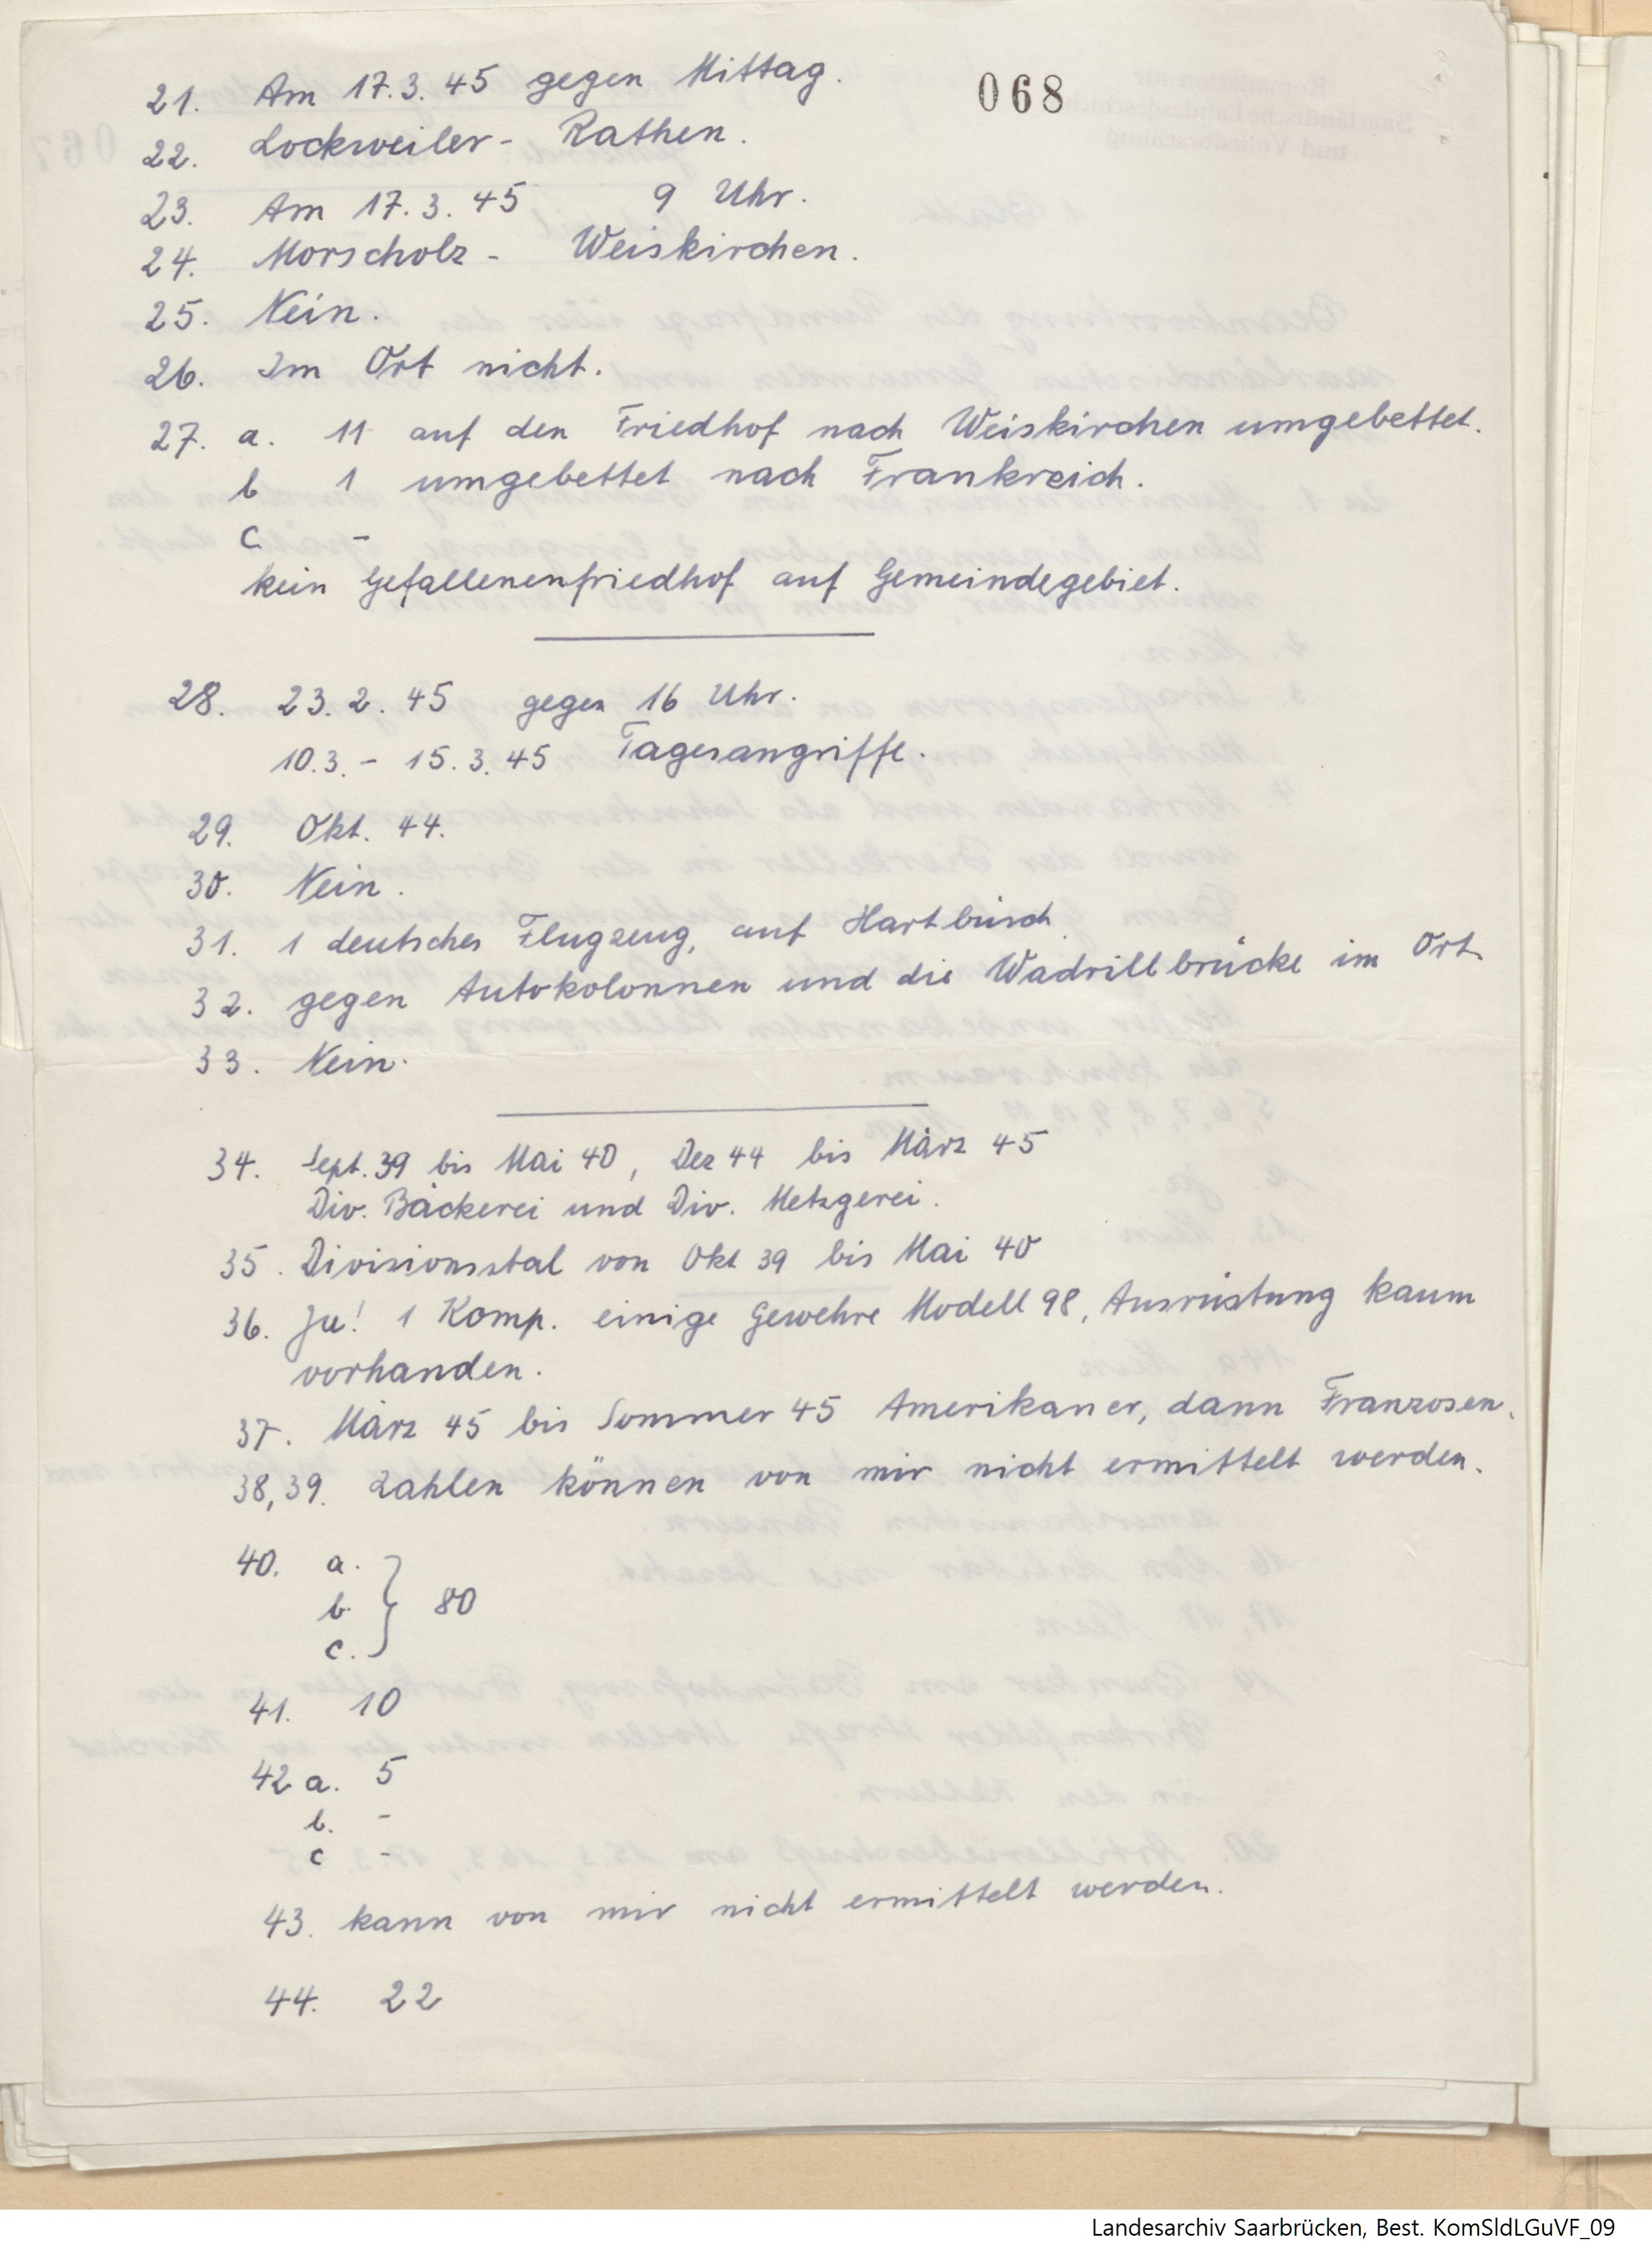 068
21. Am 17.3.45 gegen Mittag.
22. Lockweiler - Rathen.
23. Am 17.3.45 9 Uhr.
24. Morscholz - Weiskirchen.
25. Nein.
26. Im Ort nicht.
27. a. 11 auf den Friedhof nach Weiskirchen umgebettet.
b 1 umgebettet nach Frankreich.
c -
kein Gefallenenfriedhof auf Gemeindegebiet.
28. 23.2.45 gegen 16 Uhr.
10.3. - 15.3.45 Tagesangriffe.
29. Okt. 44.
30. Nein.
31. 1 deutsches Flugzeug, auf Hartbüsch
32. gegen Autokolonnen und die Wadrillbrücke im Ort.
33. Nein.
34. Sept. 39 bis Mai 40, Dez 44 bis März 45
Div. Bäckerei und Div. Metzgerei.
35. Divisionsstal von Okt 39 bis Mai 40
36. Ja! 1 Komp. einige Gewehre Modell 98, Ausrüstung kaum
vorhanden.
37. März 45 bis Sommer 45 Amerikaner, dann Franzosen.
38, 39. Zahlen können von mir nicht ermittelt werden.
40. a.
b. } 80
c.
41. 10
42 a. 5
b. -
c -
43. kann von mir nicht ermittelt werden.
44. 22
Landesarchiv Saarbrücken, Best. KomSldLGuVF_09